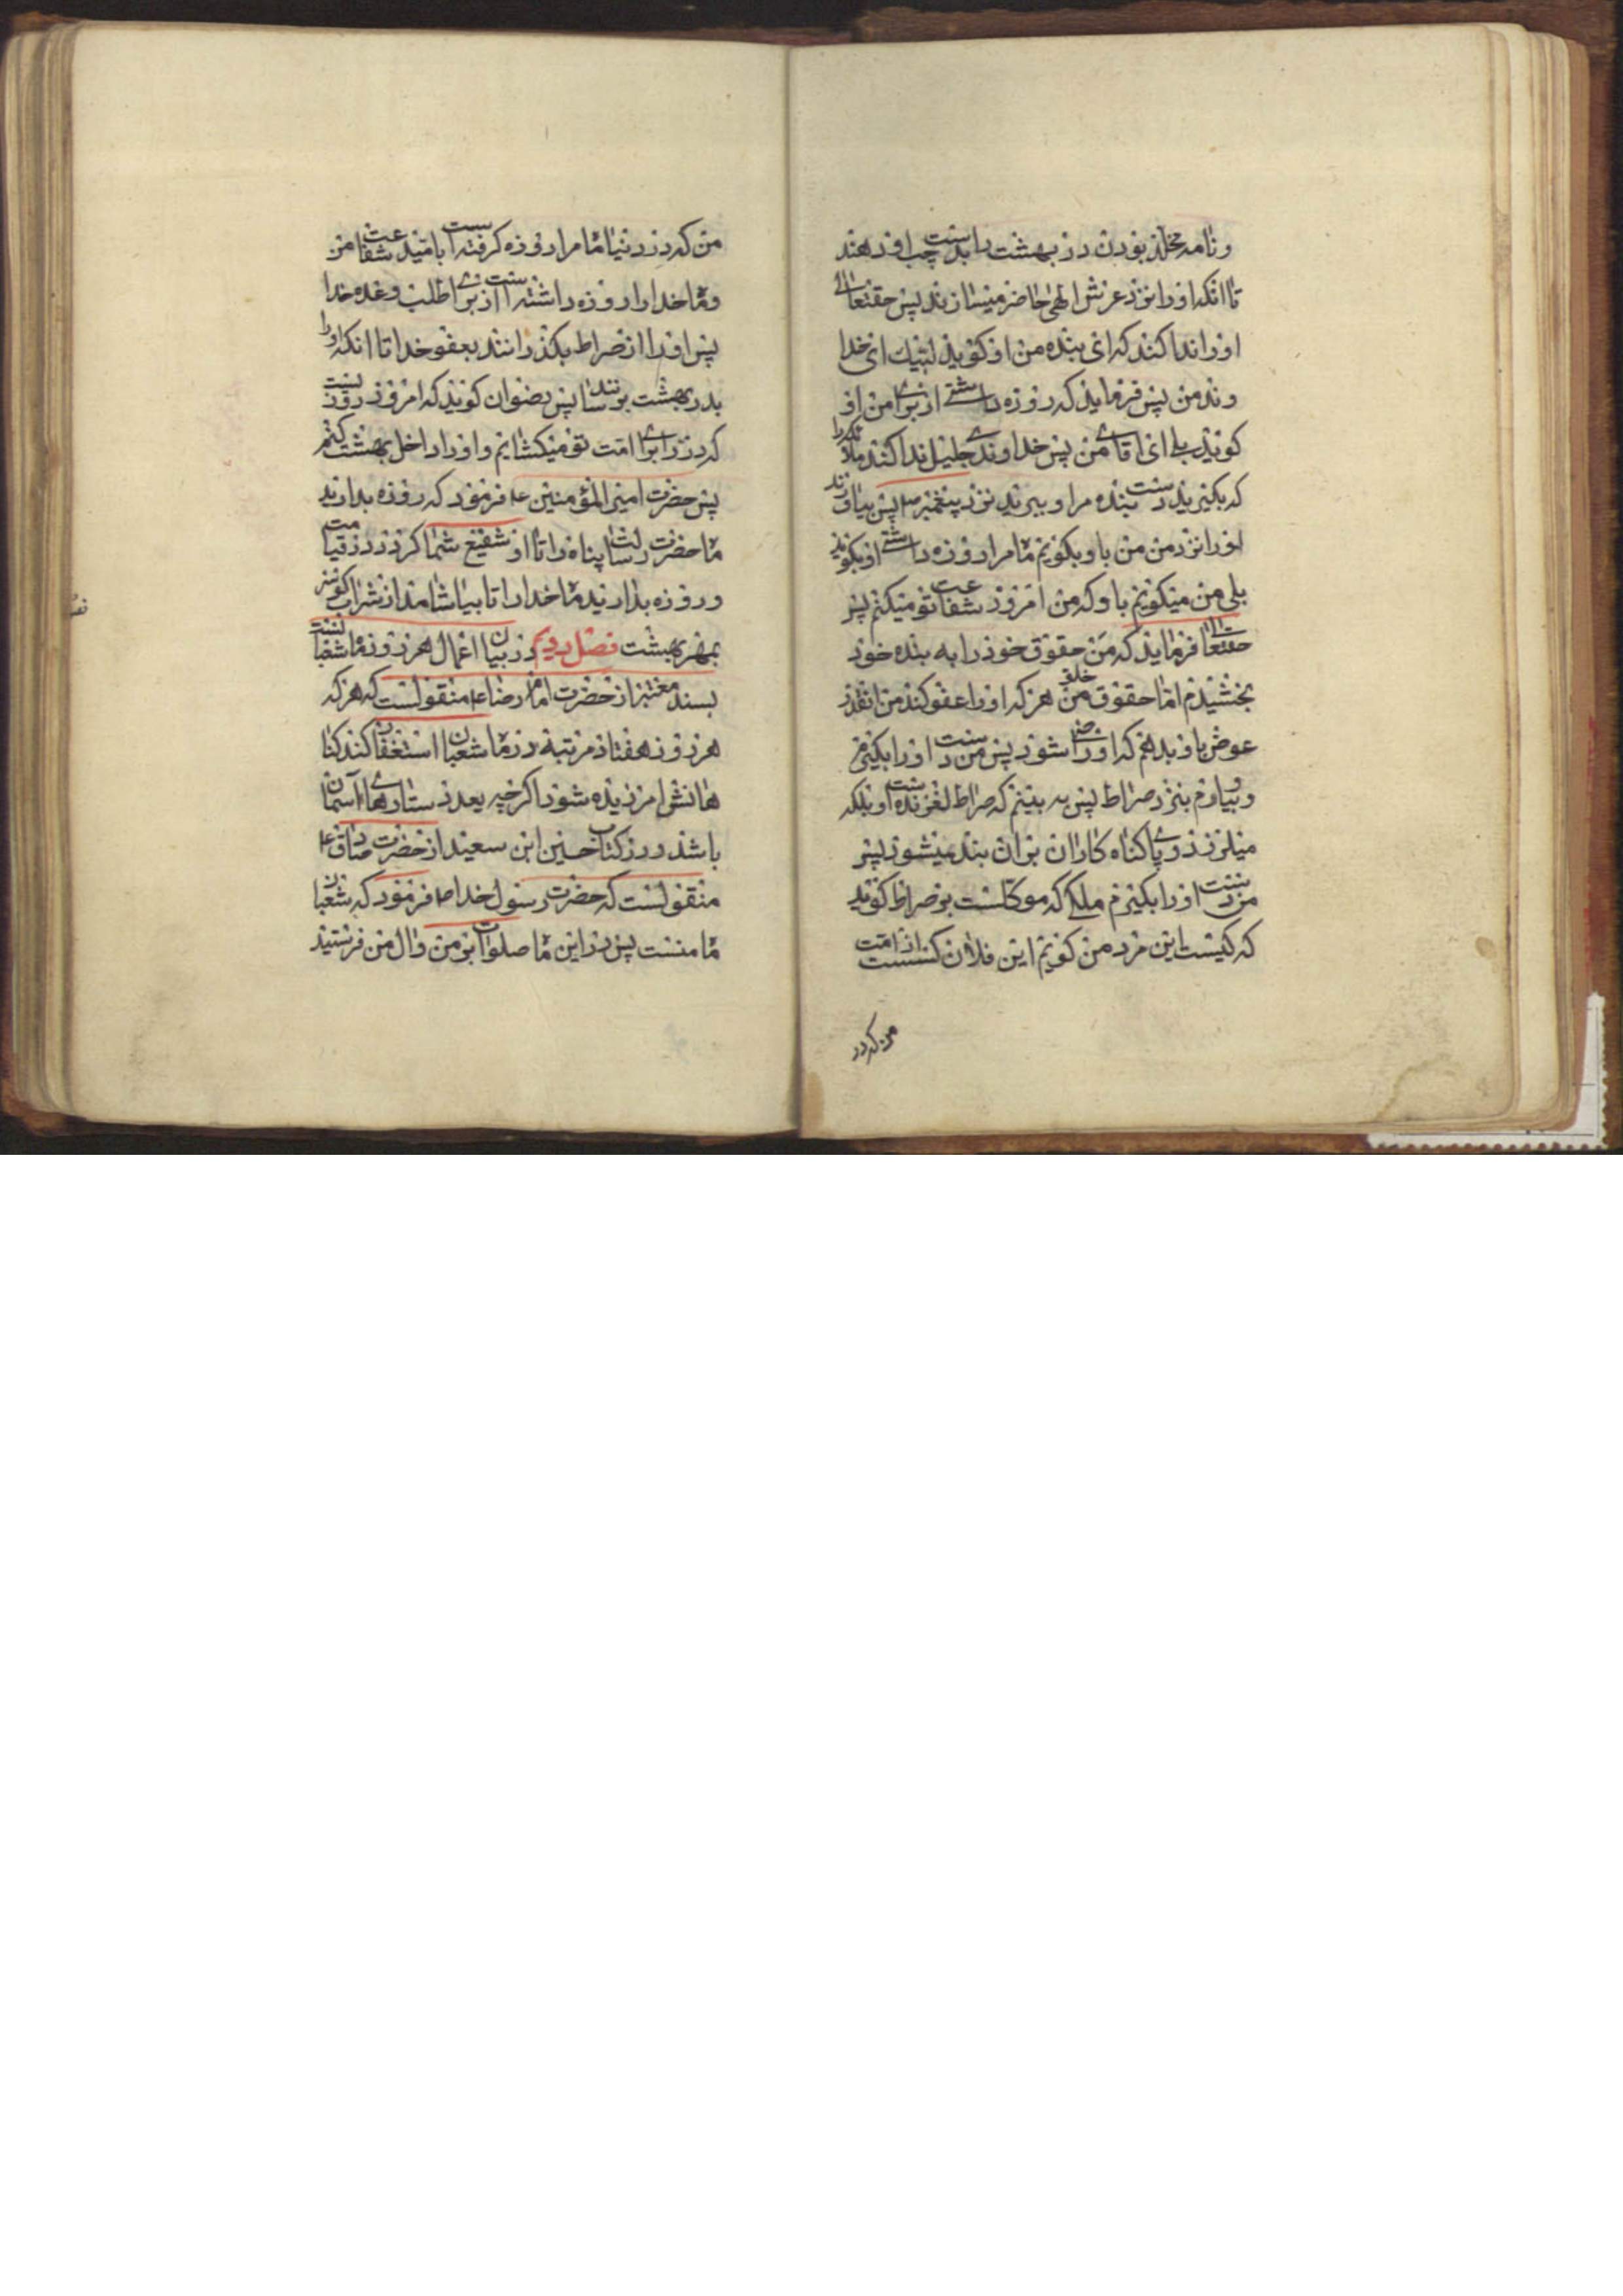 ونامه مخلد بودن در بهشت را بدست چپ او دهند
تا انکه او را نزد عرش الهی حاضر میسازند پس حقتعالی
او را ندا کند که ای بنده من او کوید لبیك ای خدا
وند من پس فرماید که روزه داشتی از برای من او
کوید بلی ای اقای من پس خداوند جلیل ندا کند ملائکه را
که بکیرید دست بنده مرا و ببرید نزد پیغمبر ص پس بیاورند
او را نزد من من باو بکویم ماه مرا روزه داشتی او بکوید
بلی من میکویم باو که من امروز شفاعت تو میکنم پس
حقتعالی فرماید که من حقوق خود را به بنده خود
بخشیدم اما حقوق خلق من هر که او را عفو کند من انقدر
عوض باو بدهم که او راضی شود پس من دست او را بکیرم
و بیاورم بنزد صراط پس به بینم که صراط لغزنده است و بلکه
میلرزد و پای کناه کاران بران بند نمیشود پس
من دست او را بکیرم ملکی که موکلست بر صراط کوید
که کیست این مرد من کویم این فلان کسست از امت
من که در
من که در دنیا ماه مرا روزه کرفته است بامید شفاعت من
و ماه خدا را روزه داشته است از برای طلب وعده خدا
پس او را از صراط بکذرانند بعفو خدا تا انکه او را
بدر بهشت برسانند پس رضوان کوید که امروز روزیست
که در را برای امت تو میکشایم و او را داخل بهشت کنم
پس حضرت امیر المؤمنین ع فرمود که روزه بدارید
ماه حضرت رسالت پناه را تا او شفیع شما کردد در قیامت
و روزه بدارید ماه خدا را تا بیاشامند از شراب کوثر
بهر بهشت فصل دویم در بیان اعمال هر روز ماه شعبانست
بسند معتبر از حضرت امام رضا ع منقولست که هر که
هر روز هفتاد مرتبه در ماه شعبان استغفار کند کنا
هانش امرزیده شود اکرچه بعدد ستارهای آسمان
باشد و در کتاب حسین ابن سعید از حضرت صادق ع
منقولست که حضرت رسول خدا ص فرمود که شعبان
ماه منست پس در این ماه صلوات بر من و ال من فرستید